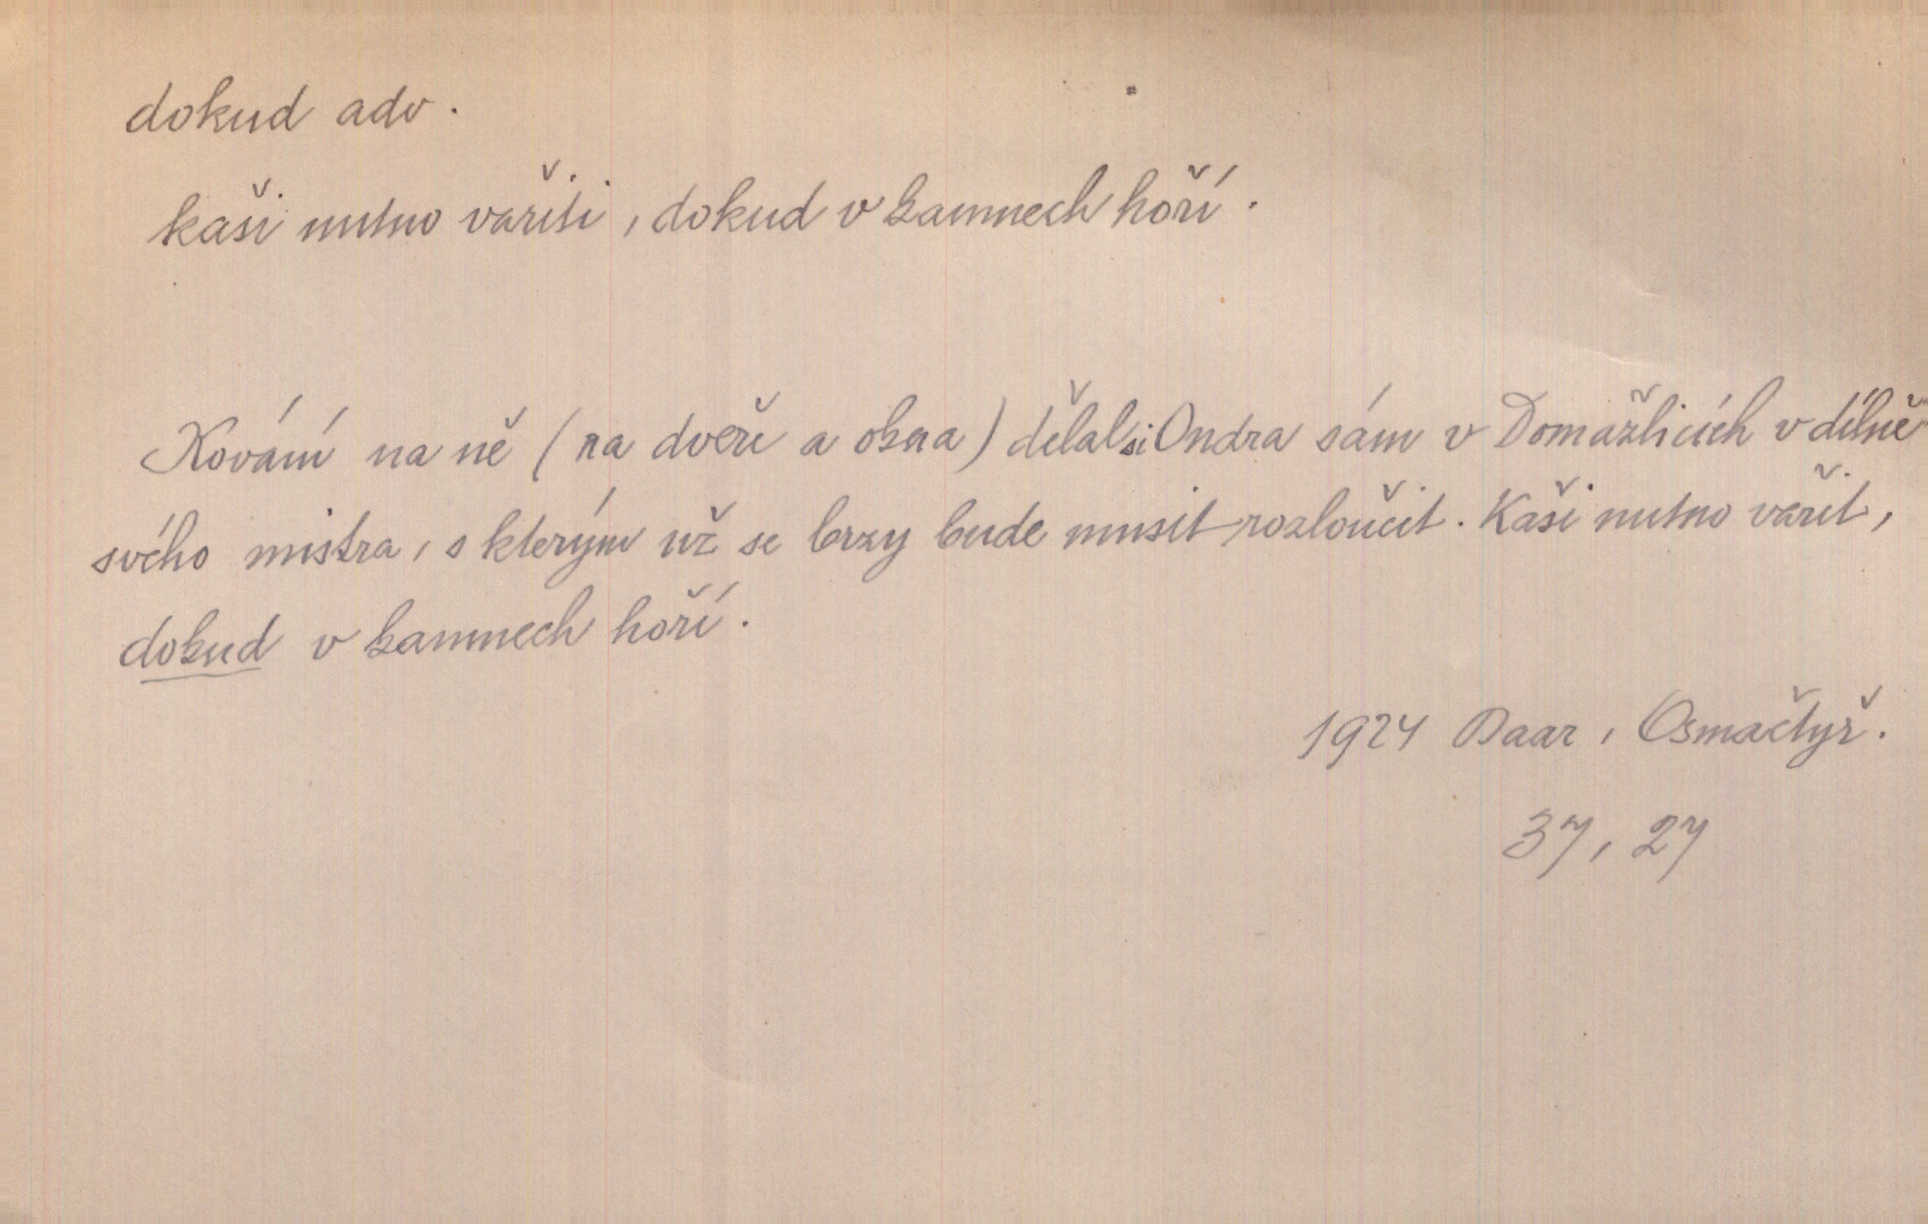 dokud adv.
kaši nutno vařiti, dokud v kamnech hoří.
Kování na ně (na dveře a okna) dělal si Ondra sám v Domažlicích v dílně
svého mistra, s kterým už se brzy bude musit rozloučit. Kaši nutno vařit,
dokud v kamnech hoří.
1924 Baar, Osmačtyř.
37, 27